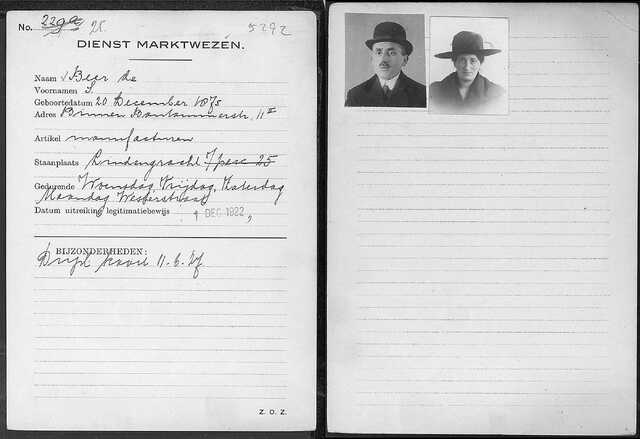 No. 229a 25. 5292
DIENST MARKTWEZEN.
Naam Beer de
Voornamen S.
Geboortedatum 20 December 1875
Adres Binnen Bantammerstr. 11 II
Artikel manufacturen
Staanplaats Lindengracht 25
Gedurende Woensdag, Vrijdag, Zaterdag
Maandag Westerstraat
Datum uitreiking legitimatiebewijs 1 DEC 1922,
BIJZONDERHEDEN:
11.6.
Z. O. Z.